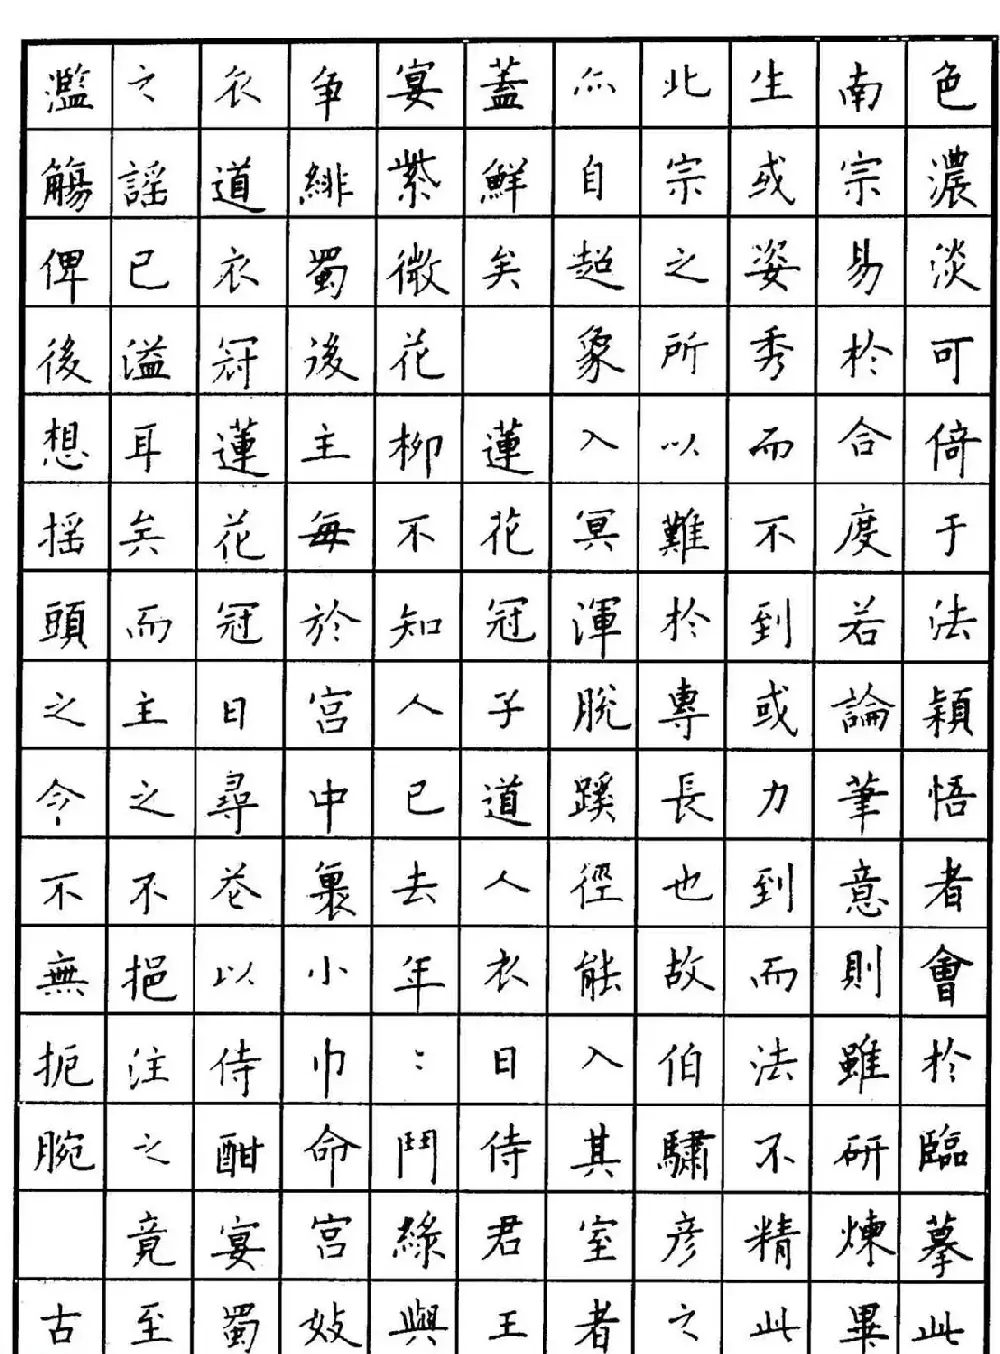 色濃淡可倚于法穎悟者會於臨摹此
南宗易於合度若論筆意則雖研煉畢
生或姿秀而不到或力到而法不精此
北宗之所以難於專長也故伯驌彥之
爪自超象入冥渾脫蹊徑能入其室者
蓋鮮矣 蓮花冠子道人衣日侍君王
宴紫微花柳不知人已去年:鬥綠與
争緋蜀後主每於宮中裹小巾命宮妓
衣道衣冠蓮花冠日尋花以侍酣宴蜀
之謠已溢耳矣而主之不挹注之竟至
濫觴俾後想搖頭之令不無扼腕 古